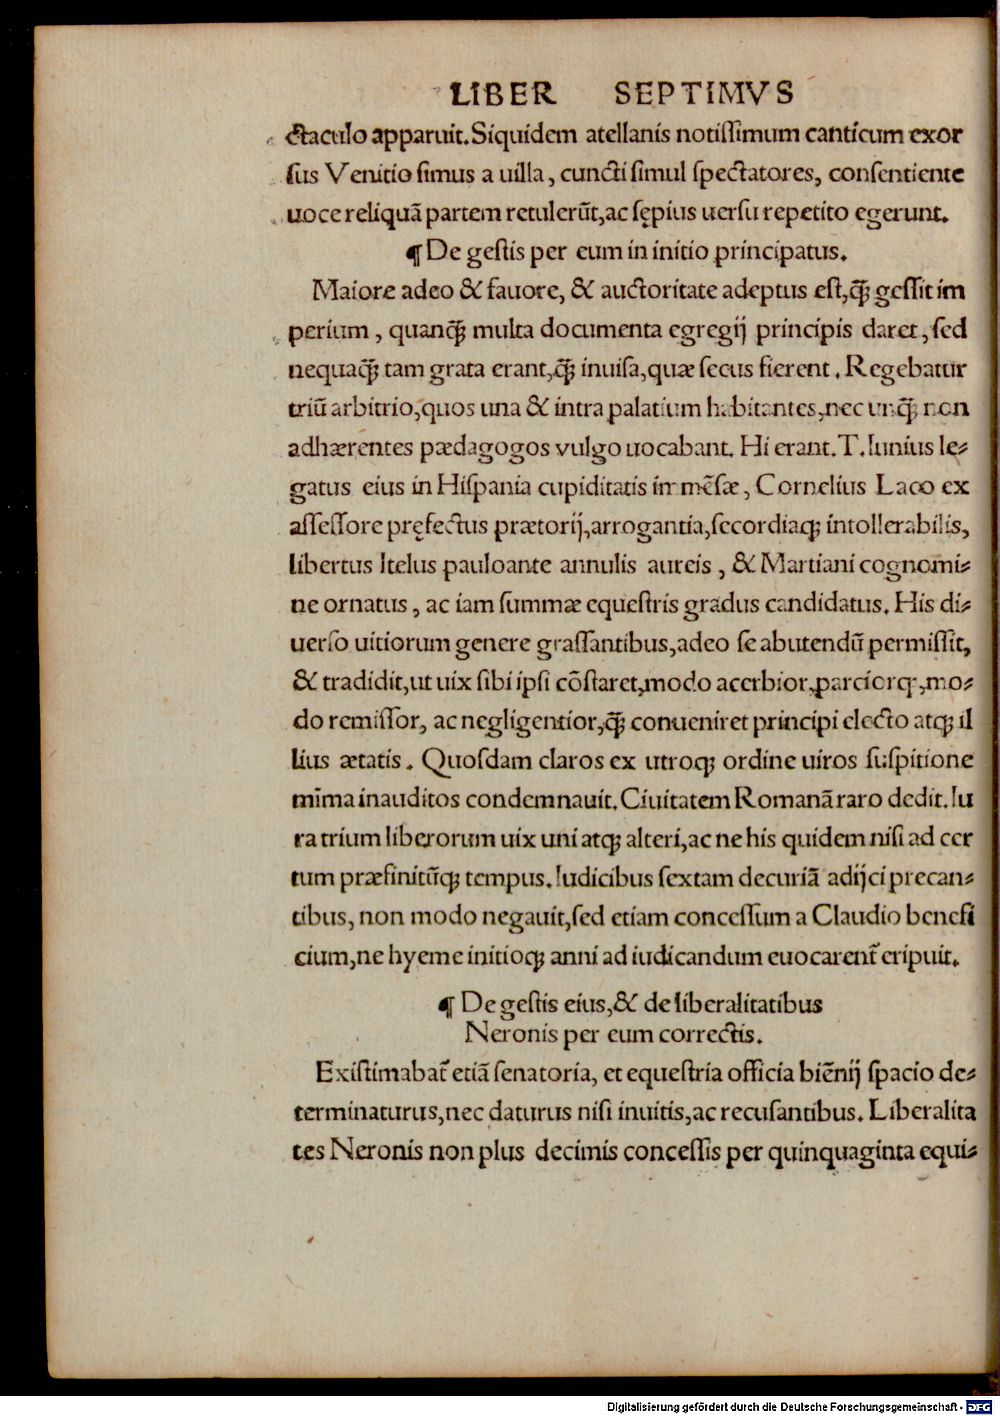 LIBER SEPTIMVS
ctaculo apparuit. Siquidem atellanis notissimum canticum exor
sus Venitio simus a uilla, cuncti simul spectatores, consentiente
uoce reliquā partem retulerūt, ac sępius uersu repetito egerunt.
¶ De gestis per eum in initio principatus.
Maiore adeo & fauore, & auctoritate adeptus est, q̃ gessit im
perium, quanq̃ multa documenta egregij principis daret, sed
nequaq̃ tam grata erant, q̃ inuisa, quæ secus fierent. Regebatur
triū arbitrio, quos una & intra palatium habitantes, nec unq̃ non
adhærentes pædagogos vulgo uocabant. Hi erant. T. Iunius le⸗
gatus eius in Hispania cupiditatis immēsæ, Cornelius Laco ex
assessore pręfectus prætorij, arrogantia, secordiaq; intollerabilis,
libertus Itelus pauloante annulis aureis, & Martiani cognomi⸗
ne ornatus, ac iam summæ equestris gradus candidatus. His di⸗
uerso uitiorum genere grassantibus, adeo se abutendū permissit,
& tradidit, ut uix sibi ipsi cōstaret, modo acerbior, parciorq;, mo⸗
do remissor, ac negligentior, q̃ conueniret principi electo atq; il
lius ætatis. Quosdam claros ex utroq; ordine uiros suspitione
mīma inauditos condemnauit. Ciuitatem Romanā raro dedit. Iu
ra trium liberorum uix uni atq; alteri, ac ne his quidem nisi ad cer
tum præfinitūq; tempus. Iudicibus sextam decuriā adijci precan⸗
tibus, non modo negauit, sed etiam concessum a Claudio benefi
cium, ne hyeme initioq; anni ad iudicandum euocarent̃ eripuit.
¶ De gestis eius, & de liberalitatibus
Neronis per eum correctis.
Existimabat̃ etiā senatoria, et equestria officia biēnij spacio de⸗
terminaturus, nec daturus nisi inuitis, ac recusantibus. Liberalita
tes Neronis non plus decimis concessis per quinquaginta equi⸗
Digitalisierung gefördert durch die Deutsche Forschungsgemeinschaft - DFG